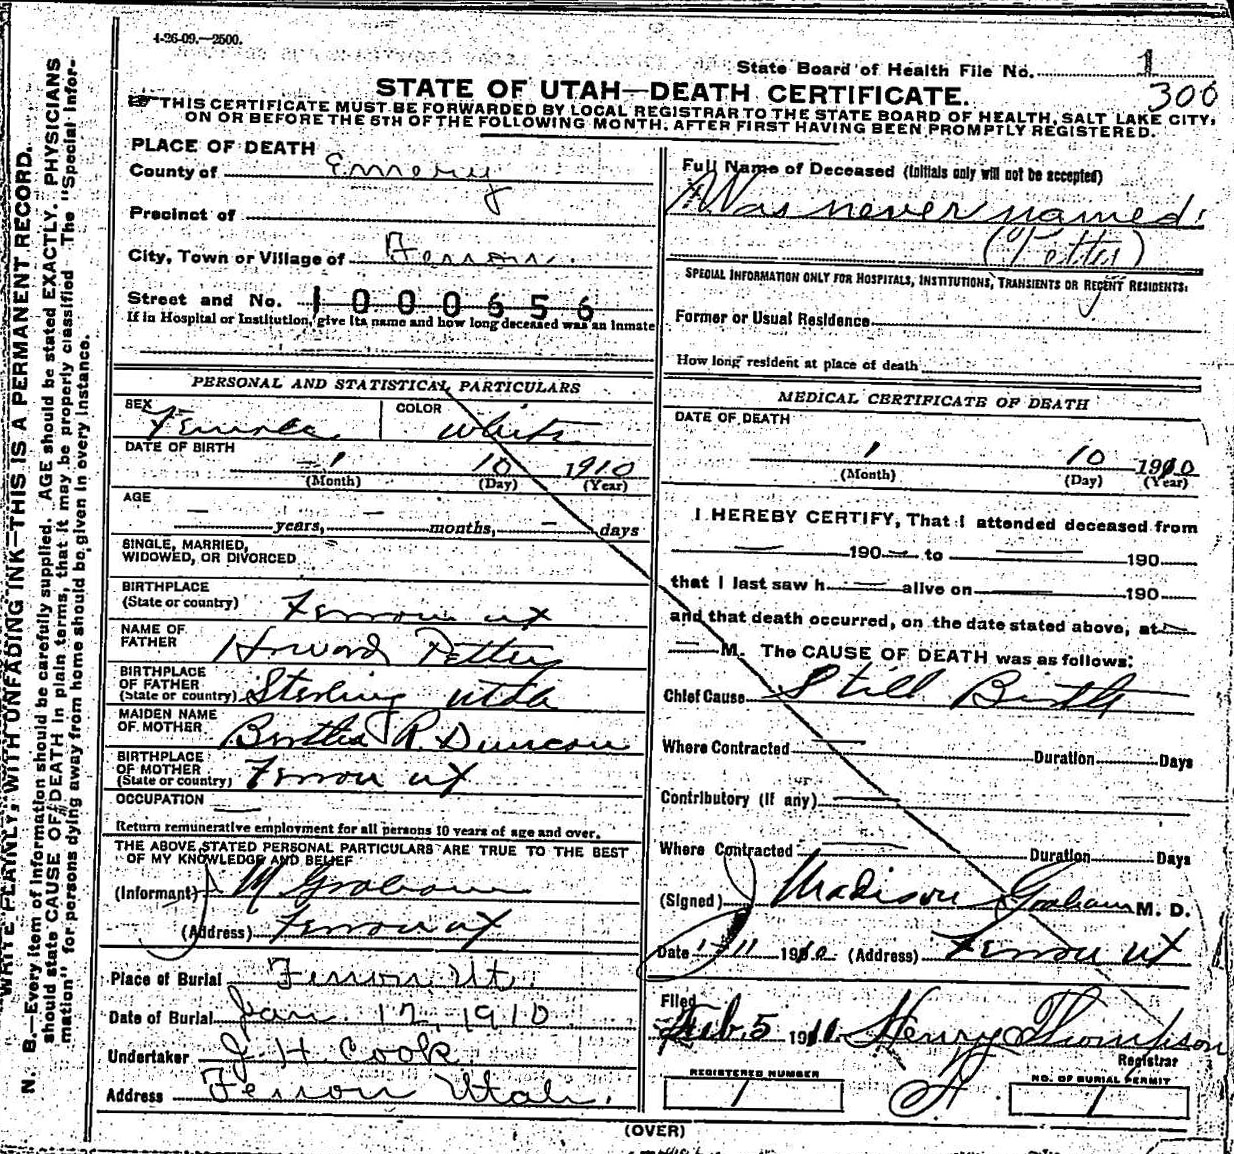 4-26-09.—2500.
State Board of Health File No. 1
300
STATE OF UTAH—DEATH CERTIFICATE.
THIS CERTIFICATE MUST BE FORWARDED BY LOCAL REGISTRAR TO THE STATE BOARD OF HEALTH, SALT LAKE CITY,
ON OR BEFORE THE 5TH OF THE FOLLOWING MONTH, AFTER FIRST HAVING BEEN PROMPTLY REGISTERED.
N. B.—Every item of information should be carefully supplied. AGE should be stated EXACTLY. PHYSICIANS
should state CAUSE OF DEATH in plain terms, that it may be properly classified. The "Special Infor-
mation" for persons dying away from home should be given in every instance.
WRITE PLAINLY, WITH UNFADING INK—THIS IS A PERMANENT RECORD.
PLACE OF DEATH
County of Emery
Precinct of
City, Town or Village of Ferron.
Street and No. 1000656
If in Hospital or Institution, give its name and how long deceased was an inmate
PERSONAL AND STATISTICAL PARTICULARS
SEX Female COLOR White
DATE OF BIRTH
1 10 1910
(Month) (Day) (Year)
AGE
— years, — months, — days
SINGLE, MARRIED,
WIDOWED, OR DIVORCED
BIRTHPLACE
(State or country) Ferron ut
NAME OF
FATHER Howard Pettey
BIRTHPLACE
OF FATHER
(State or country) Sterling Utah
MAIDEN NAME
OF MOTHER Bertha R. Duncan
BIRTHPLACE
OF MOTHER
(State or country) Ferron ut
OCCUPATION —
Return remunerative employment for all persons 10 years of age and over.
THE ABOVE STATED PERSONAL PARTICULARS ARE TRUE TO THE BEST
OF MY KNOWLEDGE AND BELIEF
(Informant) M Graham
(Address) Ferron ut
Place of Burial Ferron, Ut.
Date of Burial Jan. 12, 1910
Undertaker J. H. Cook
Address Ferron Utah.
Full Name of Deceased (Initials only will not be accepted)
Was never named.
(Pettey)
SPECIAL INFORMATION ONLY FOR HOSPITALS, INSTITUTIONS, TRANSIENTS OR RECENT RESIDENTS:
Former or Usual Residence
How long resident at place of death
MEDICAL CERTIFICATE OF DEATH
DATE OF DEATH
1 10 1910
(Month) (Day) (Year)
I HEREBY CERTIFY, That I attended deceased from
— 190 — to — 190
that I last saw h — alive on — 190
and that death occurred, on the date stated above, at —
— M. The CAUSE OF DEATH was as follows:
Chief Cause Still Birth
Where Contracted — Duration Days
Contributory (If any) —
Where Contracted — Duration Days
(Signed) Madison Graham M. D.
Date 1-11 1910 (Address) Ferron ut
Filed
Feb. 5 1910. Henry Thompson
Registrar
REGISTERED NUMBER
1
NO. OF BURIAL PERMIT
1
(OVER)